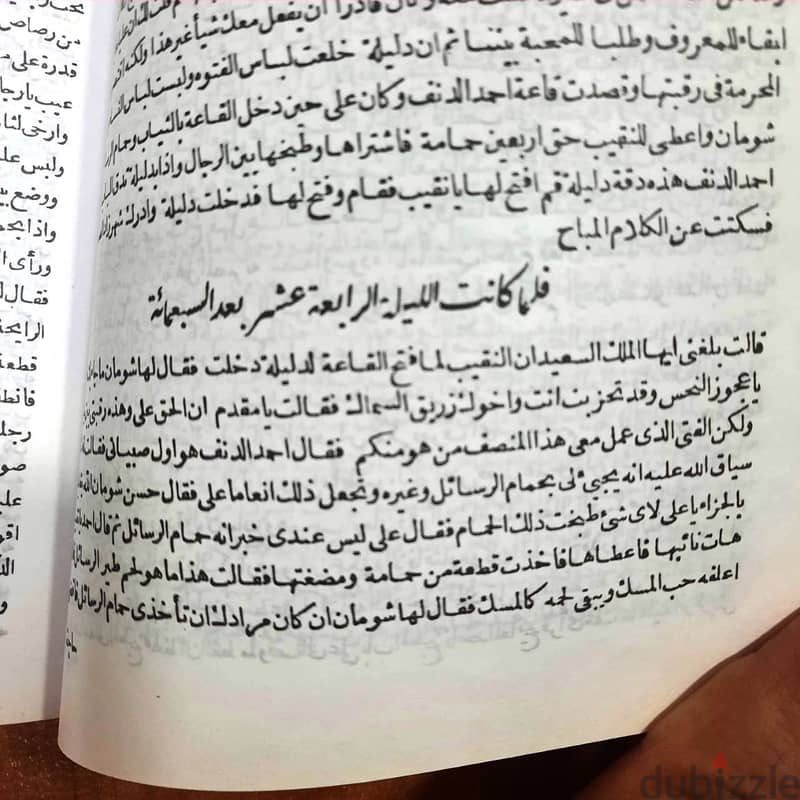 ابقاء للمعروف وطلبا للمحبة بيننا ثم ان دليلة خلعت لباس الفتوة ولبست لباس
المحرمة فى رقبتها وقصدت قاعة احمد الدنف وكان على حين دخل القاعة بالثياب وحمام
شومان واعطى للنقيب حق اربعين حمامة فاشتراها وطبخها بين الرجال واذا بدليلة تدق الباب
احمد الدنف هذه دقة دليلة قم افتح لها يا نقيب فقام وفتح لها فدخلت دليلة وادرك شهرزاد
فسكتت عن الكلام المباح
فلما كانت الليلة الرابعة عشر بعد السبعمائة
قالت بلغنى ايها الملك السعيدان النقيب لما فتح القاعة لدليلة دخلت فقال لها شومان ما
يا عجوز النحس وقد تحزبت انت واخوك زريق السماك فقالت يا مقدم ان الحق على وهذه رقبتى
ولكن الفتى الذى عمل معى هذا المنصف من هو منكم فقال احمد الدنف هو اول صبيانى فقالت
سياق الله عليه انه يجئ لى بحمام الرسائل وغيره وتجعل ذلك انعاما على فقال حسن شومان الله
بالجزاء يا على لاى شئ طبخت ذلك الحمام فقال على ليس عندى خبر انه حمام الرسائل ثم قال احمد
هات نائبها فاعطاها فاخذت قطعة من حمامة ومضغتها فقالت هذا ما هو لحم طير الرسائل
اعلفه حب المسك ويبقى لحمه كالمسك فقال لها شومان ان كان مرادك ان تأخذى حمام الرسائل
من رصاص
قدرة على
وارخى
ولبس
ووضع
واذا
ورأى
فقال
الرايحة
قطعة
dubizzle